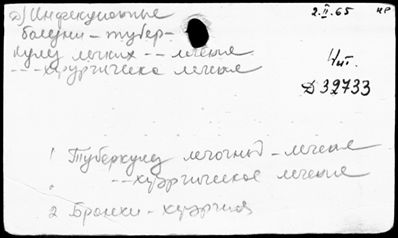 д) Инфекционные
болезни - тубер-
кулез легких -- лечение
--- хирургическое лечение
2.II.65
нр
4/иг.
Д 32733
1 Туберкулез легочный - лечение
" --хирургическое лечение
2 Бронхи - хирургия